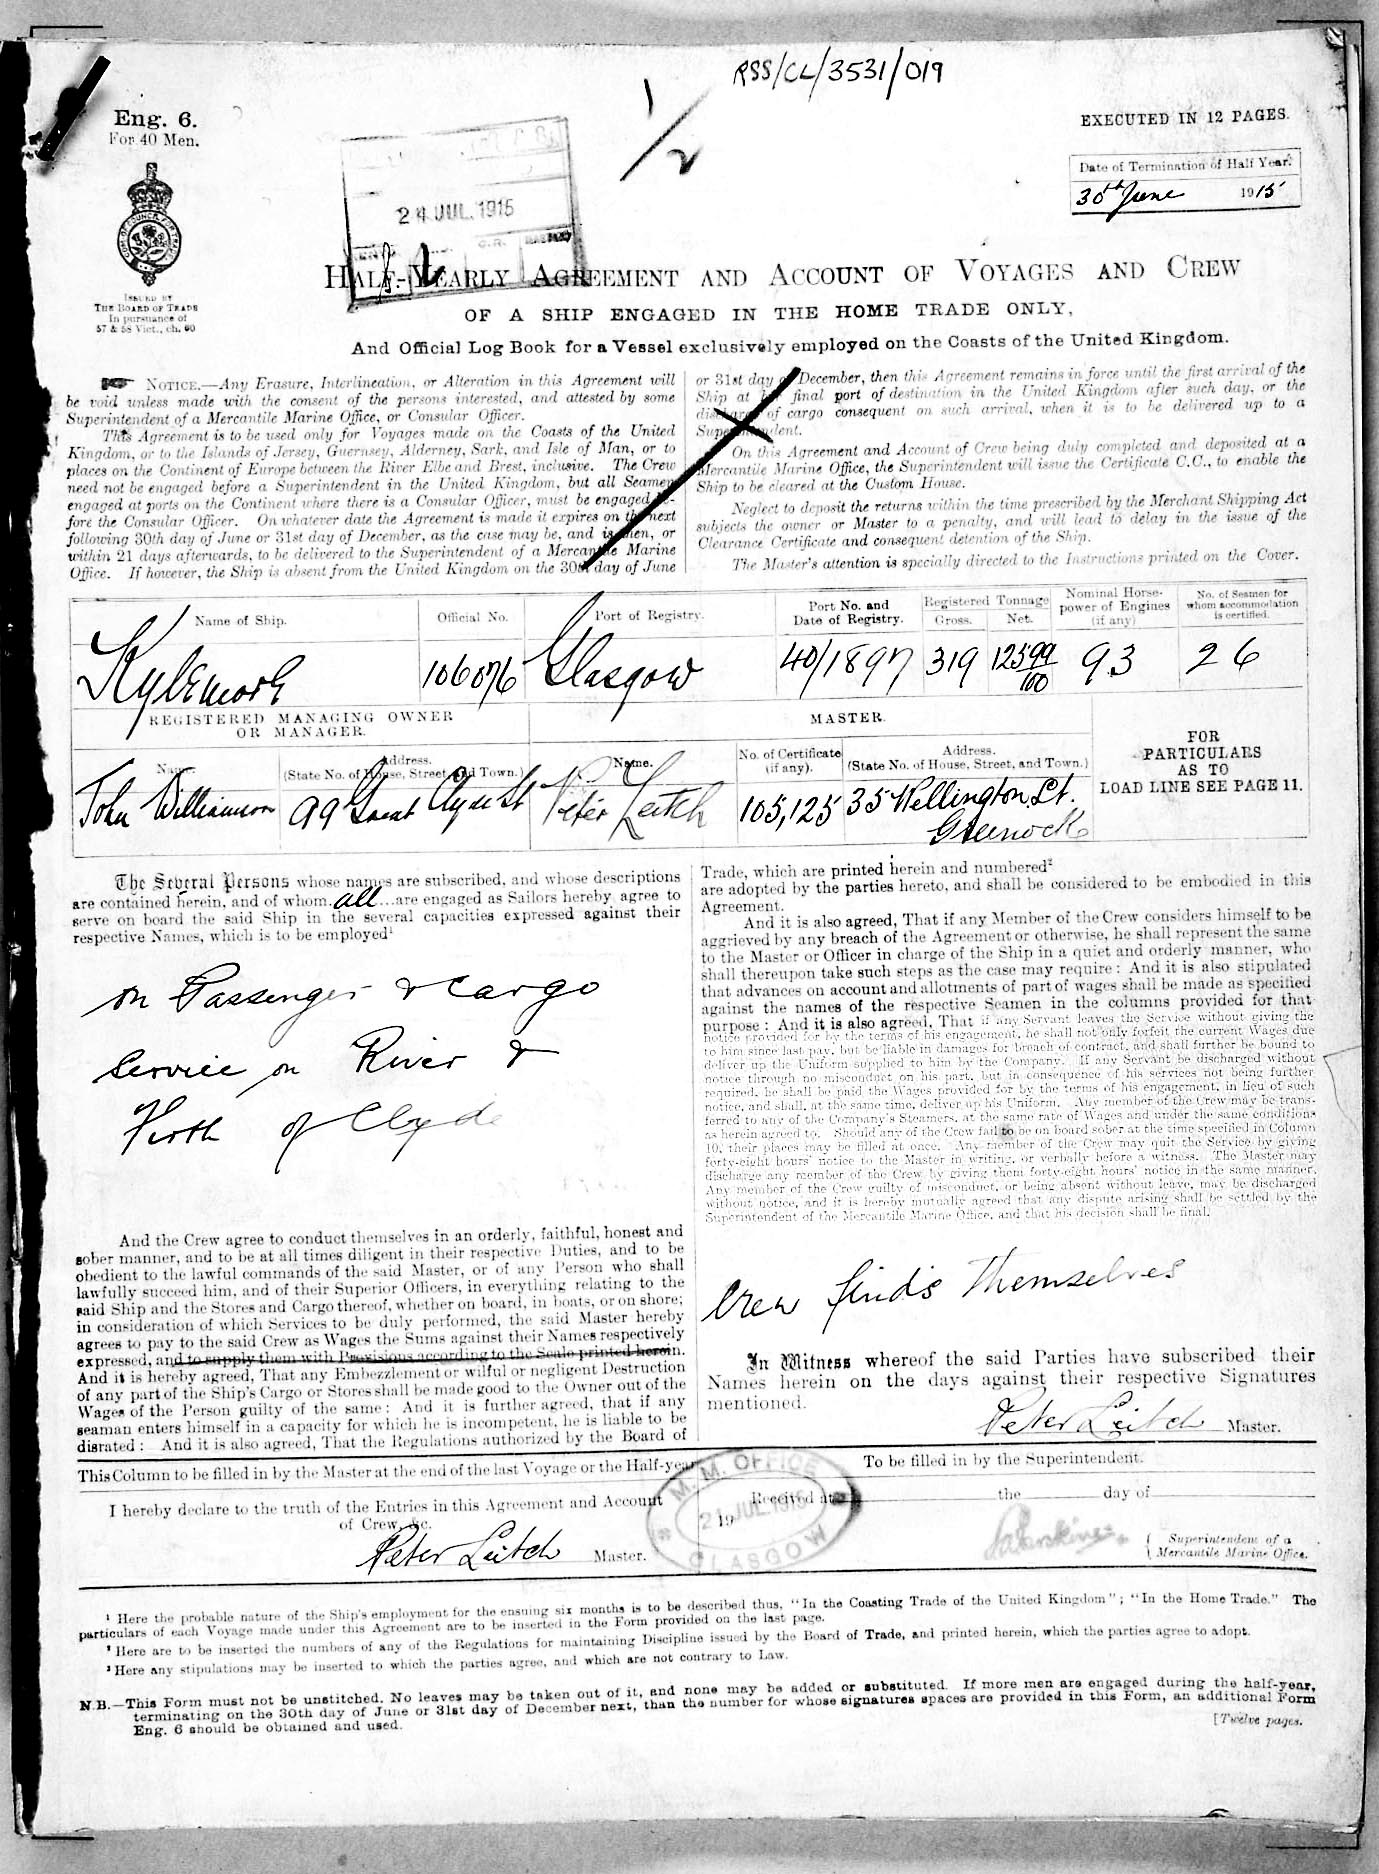 RSS/CL/3531/019
1/2
Eng. 6.
For 40 Men.
EXECUTED IN 12 PAGES.
Date of Termination of Half Year.
30th June 1915
24 JUL. 1915
ISSUED BY
THE BOARD OF TRADE
In pursuance of
57 & 58 Vict., ch. 60
HALF-YEARLY AGREEMENT AND ACCOUNT OF VOYAGES AND CREW
OF A SHIP ENGAGED IN THE HOME TRADE ONLY,
And Official Log Book for a Vessel exclusively employed on the Coasts of the United Kingdom.
NOTICE.—Any Erasure, Interlineation, or Alteration in this Agreement will
be void unless made with the consent of the persons interested, and attested by some
Superintendent of a Mercantile Marine Office, or Consular Officer.
This Agreement is to be used only for Voyages made on the Coasts of the United
Kingdom, or to the Islands of Jersey, Guernsey, Alderney, Sark, and Isle of Man, or to
places on the Continent of Europe between the River Elbe and Brest, inclusive. The Crew
need not be engaged before a Superintendent in the United Kingdom, but all Seamen
engaged at ports on the Continent where there is a Consular Officer, must be engaged be-
fore the Consular Officer. On whatever date the Agreement is made it expires on the next
following 30th day of June or 31st day of December, as the case may be, and is then, or
within 21 days afterwards, to be delivered to the Superintendent of a Mercantile Marine
Office. If however, the Ship is absent from the United Kingdom on the 30th day of June
or 31st day of December, then this Agreement remains in force until the first arrival of the
Ship at her final port of destination in the United Kingdom after such day, or the
discharge of cargo consequent on such arrival, when it is to be delivered up to a
Superintendent.
On this Agreement and Account of Crew being duly completed and deposited at a
Mercantile Marine Office, the Superintendent will issue the Certificate C.C., to enable the
Ship to be cleared at the Custom House.
Neglect to deposit the returns within the time prescribed by the Merchant Shipping Act
subjects the owner or Master to a penalty, and will lead to delay in the issue of the
Clearance Certificate and consequent detention of the Ship.
The Master's attention is specially directed to the Instructions printed on the Cover.
Name of Ship. Official No. Port of Registry. Port No. and Date of Registry. Registered Tonnage Gross. Net. Nominal Horse-power of Engines (if any) No. of Seamen for whom accommodation is certified.
Kylemore 106076 Glasgow 40/1897 319 125 99/100 93 26
REGISTERED MANAGING OWNER
OR MANAGER.
MASTER.
FOR
PARTICULARS
AS TO
LOAD LINE SEE PAGE 11.
Name. Address. (State No. of House, Street, and Town.) Name. No. of Certificate (if any). Address. (State No. of House, Street, and Town.)
John Williamson 99 Great Clyde St Peter Leitch 105,125 35 Wellington St.
Greenock
The Several Persons whose names are subscribed, and whose descriptions
are contained herein, and of whom all are engaged as Sailors hereby agree to
serve on board the said Ship in the several capacities expressed against their
respective Names, which is to be employed¹
on Passenger & Cargo
Service on River &
Firth of Clyde
And the Crew agree to conduct themselves in an orderly, faithful, honest and
sober manner, and to be at all times diligent in their respective Duties, and to be
obedient to the lawful commands of the said Master, or of any Person who shall
lawfully succeed him, and of their Superior Officers, in everything relating to the
said Ship and the Stores and Cargo thereof, whether on board, in boats, or on shore;
in consideration of which Services to be duly performed, the said Master hereby
agrees to pay to the said Crew as Wages the Sums against their Names respectively
expressed, and to supply them with Provisions according to the Scale printed herein.
And it is hereby agreed, That any Embezzlement or wilful or negligent Destruction
of any part of the Ship's Cargo or Stores shall be made good to the Owner out of the
Wages of the Person guilty of the same: And it is further agreed, that if any
seaman enters himself in a capacity for which he is incompetent, he is liable to be
disrated: And it is also agreed, That the Regulations authorized by the Board of
Trade, which are printed herein and numbered²
are adopted by the parties hereto, and shall be considered to be embodied in this
Agreement.
And it is also agreed, That if any Member of the Crew considers himself to be
aggrieved by any breach of the Agreement or otherwise, he shall represent the same
to the Master or Officer in charge of the Ship in a quiet and orderly manner, who
shall thereupon take such steps as the case may require: And it is also stipulated
that advances on account and allotments of part of wages shall be made as specified
against the names of the respective Seamen in the columns provided for that
purpose: And it is also agreed, That if any Servant leaves the Service without giving the
notice provided for by the terms of his engagement, he shall not only forfeit the current Wages due
to him since last pay, but be liable in damages for breach of contract, and shall further be bound to
deliver up the Uniform supplied to him by the Company. If any Servant be discharged without
notice through no misconduct on his part, but in consequence of his services not being further
required, he shall be paid the Wages provided for by the terms of his engagement, in lieu of such
notice, and shall, at the same time, deliver up his Uniform. Any member of the Crew may be trans-
ferred to any of the Company's Steamers, at the same rate of Wages and under the same conditions
as herein agreed to. Should any of the Crew fail to be on board sober at the time specified in Column
10, their places may be filled at once. Any member of the Crew may quit the Service by giving
forty-eight hours' notice to the Master in writing, or verbally before a witness. The Master may
discharge any member of the Crew by giving them forty-eight hours' notice in the same manner.
Any member of the Crew guilty of misconduct, or being absent without leave, may be discharged
without notice, and it is hereby mutually agreed that any dispute arising shall be settled by the
Superintendent of the Mercantile Marine Office, and that his decision shall be final.
Crew finds Themselves
In Witness whereof the said Parties have subscribed their
Names herein on the days against their respective Signatures
mentioned.
Peter Leitch Master.
This Column to be filled in by the Master at the end of the last Voyage or the Half-year
To be filled in by the Superintendent.
I hereby declare to the truth of the Entries in this Agreement and Account
of Crew, &c.
Peter Leitch Master.
M. M. OFFICE
21 JUL. 1915
GLASGOW
Received at the day of
19
Superintendent of a
Mercantile Marine Office.
¹ Here the probable nature of the Ship's employment for the ensuing six months is to be described thus, "In the Coasting Trade of the United Kingdom"; "In the Home Trade." The
particulars of each Voyage made under this Agreement are to be inserted in the Form provided on the last page.
² Here are to be inserted the numbers of any of the Regulations for maintaining Discipline issued by the Board of Trade, and printed herein, which the parties agree to adopt.
³ Here any stipulations may be inserted to which the parties agree, and which are not contrary to Law.
N.B.—This Form must not be unstitched. No leaves may be taken out of it, and none may be added or substituted. If more men are engaged during the half-year,
terminating on the 30th day of June or 31st day of December next, than the number for whose signatures spaces are provided in this Form, an additional Form
Eng. 6 should be obtained and used.
[Twelve pages.